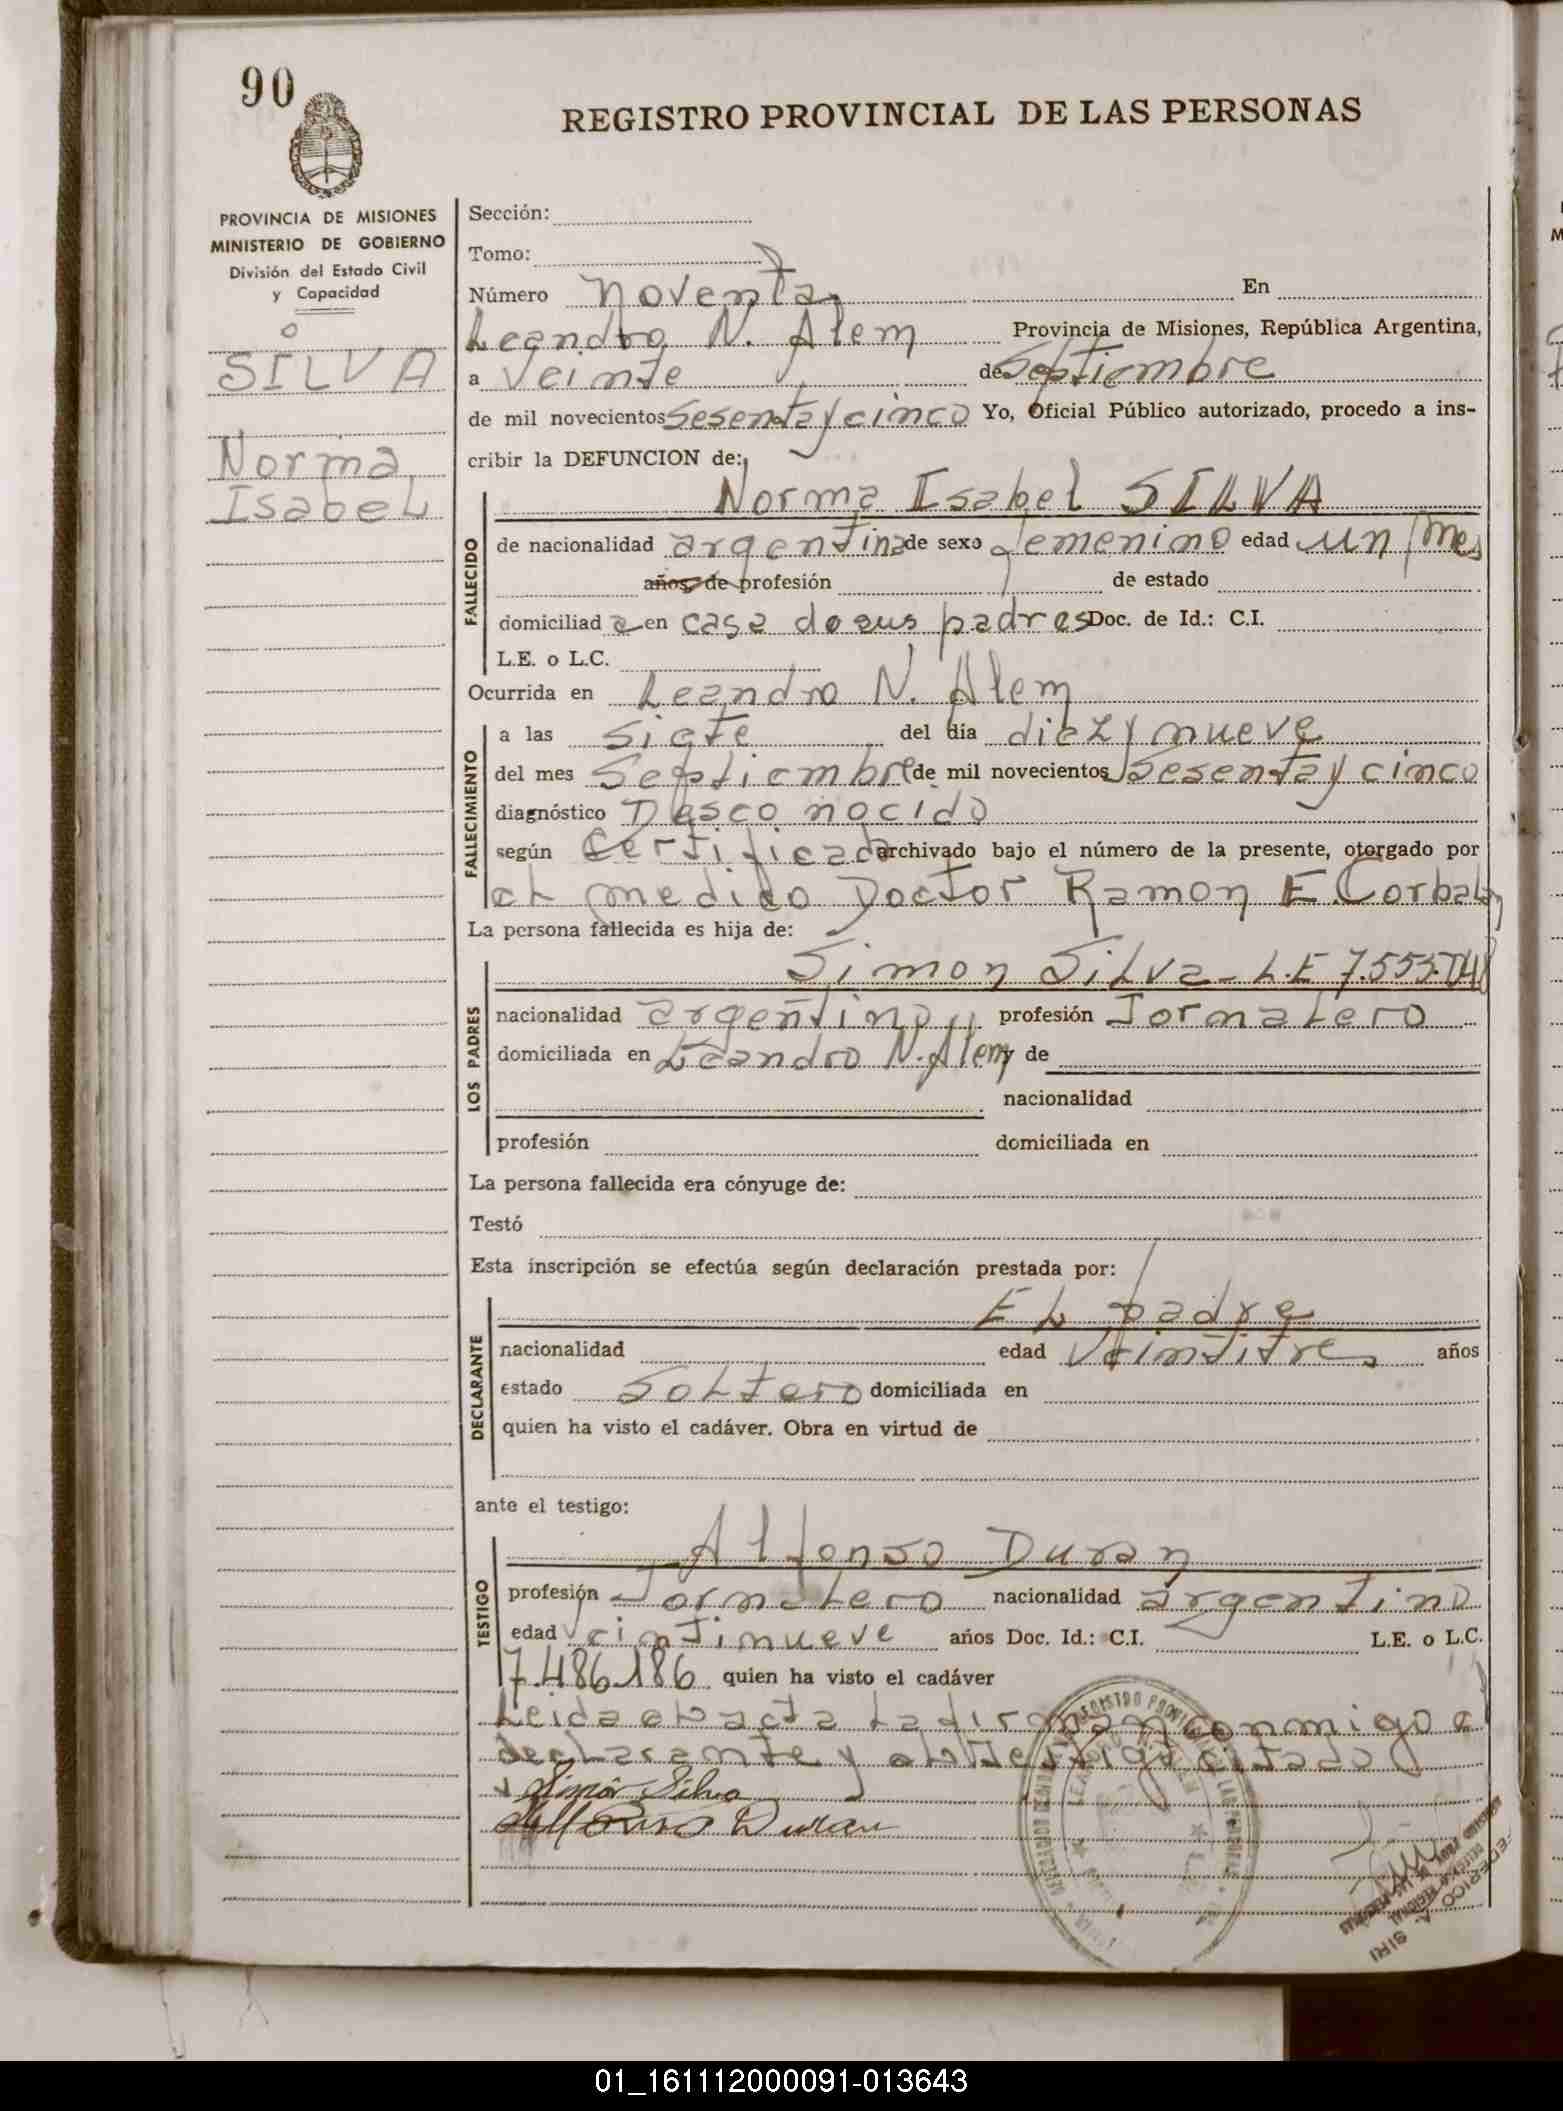 90
REGISTRO PROVINCIAL DE LAS PERSONAS
PROVINCIA DE MISIONES
MINISTERIO DE GOBIERNO
División del Estado Civil
y Capacidad
SILVA
Norma
Isabel
Sección:
Tomo:
Número noventa En
Leandro N. Alem Provincia de Misiones, República Argentina,
a veinte de Septiembre
de mil novecientos sesenta y cinco Yo, Oficial Público autorizado, procedo a ins-
cribir la DEFUNCION de:
Norma Isabel SILVA
FALLECIDO
de nacionalidad argentina de sexo femenino edad un mes
años, de profesión de estado
domiciliad a en casa de sus padres Doc. de Id.: C.I.
L.E. o L.C.
Ocurrida en Leandro N. Alem
FALLECIMIENTO
a las siete del día diez y nueve
del mes Septiembre de mil novecientos sesenta y cinco
diagnóstico Desconocido
según Certificado archivado bajo el número de la presente, otorgado por
el medico Doctor Ramon E. Corbalan
La persona fallecida es hija de:
Simon Silva - L.E 7.553.048
LOS PADRES
nacionalidad argentino profesión Jornalero
domiciliada en Leandro N. Alem y de
nacionalidad
profesión domiciliada en
La persona fallecida era cónyuge de:
Testó
Esta inscripción se efectúa según declaración prestada por:
El padre
DECLARANTE
nacionalidad edad veintitres años
estado Soltero domiciliada en
quien ha visto el cadáver. Obra en virtud de
ante el testigo:
Alfonso Duran
TESTIGO
profesión Jornalero nacionalidad argentino
edad veintinueve años Doc. Id.: C.I. L.E. o L.C.
7.486.186 quien ha visto el cadáver
Leida el acta la firman conmigo el
declarante y el testigo citado
Simón Silva
Alfonso Duran
FEDERICO A. SIRI
01_161112000091-013643